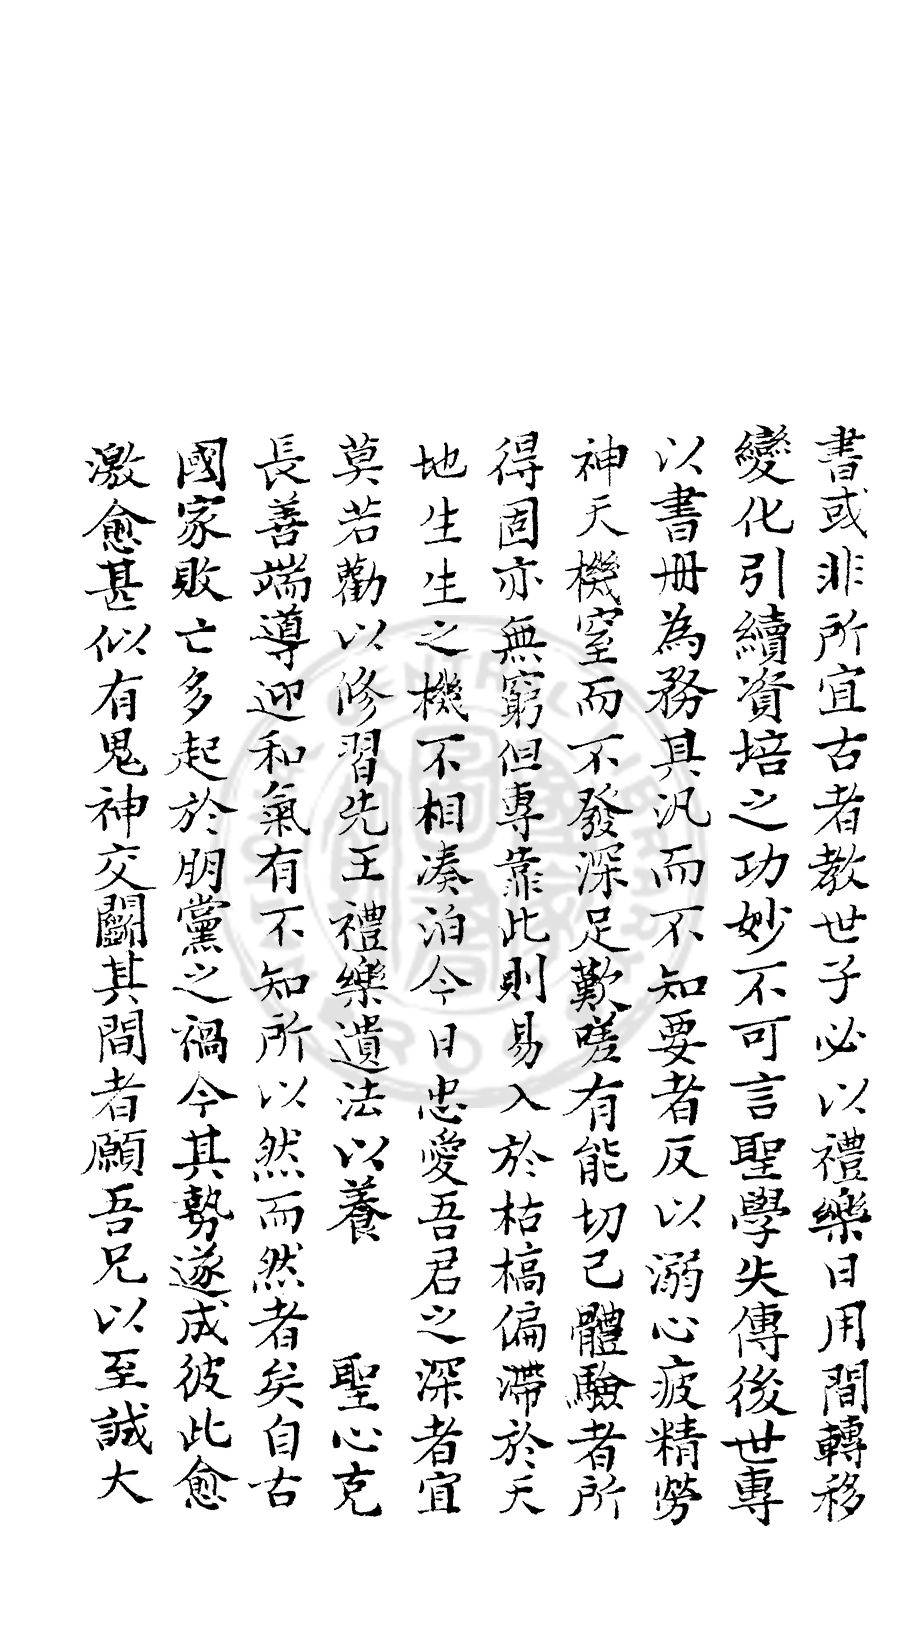 書或非所宜古者教世子必以禮樂日用間轉移
變化引續資培之功妙不可言聖學失傳後世專
以書冊為務其汎而不知要者反以溺心疲精勞
神天機窒而不發深足歎嗟有能切己體驗者所
得固亦無窮但專靠此則易入於枯槁偏滯於天
地生生之機不相湊泊今日忠愛吾君之深者宜
莫若勸以修習先王禮樂遺法以養　聖心克
長善端導迎和氣有不知所以然而然者矣自古
國家敗亡多起於朋黨之禍今其勢遂成彼此愈
激愈甚似有鬼神交鬭其間者願吾兄以至誠大